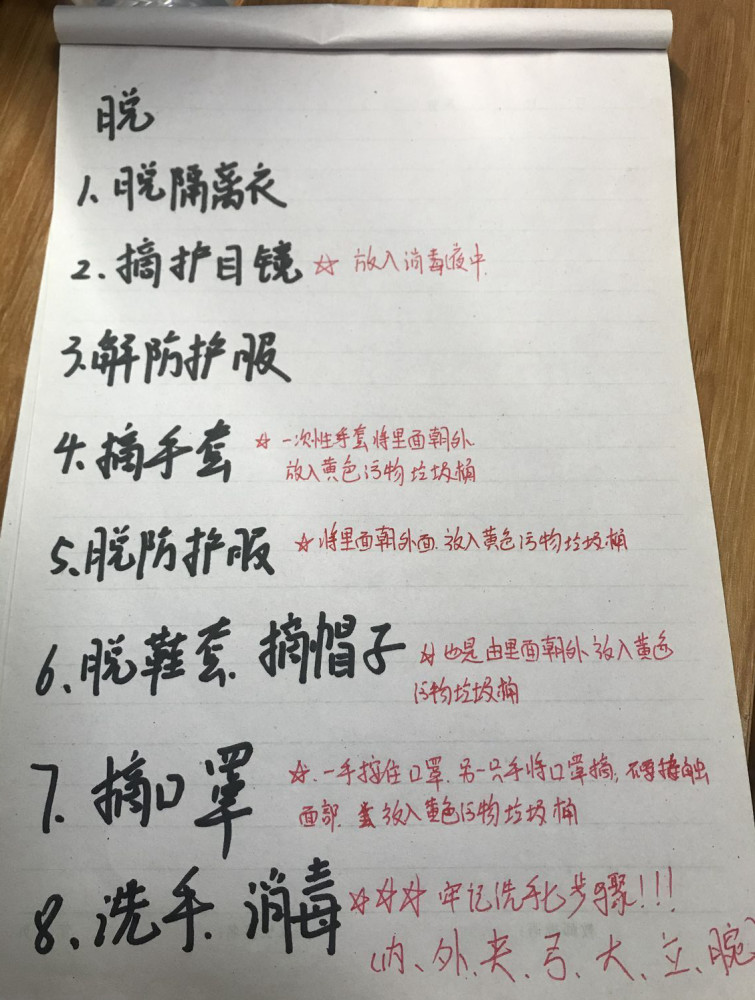 脱
1、脱隔离衣
2、摘护目镜 ☆ 放入消毒液中
3、解防护服
4、摘手套 ☆ 一次性手套将里面朝外
放入黄色污物垃圾桶
5、脱防护服 ☆ 将里面朝外面、放入黄色污物垃圾桶
6、脱鞋套、摘帽子 ☆ 也是由里面朝外、放入黄色
污物垃圾桶
7、摘口罩 ☆、一手按住口罩、另一只手将口罩摘、不要接触
面部、放入黄色污物垃圾桶
8、洗手、消毒 ☆☆☆ 牢记洗手七步骤!!!
(内、外、夹、弓、大、立、腕)